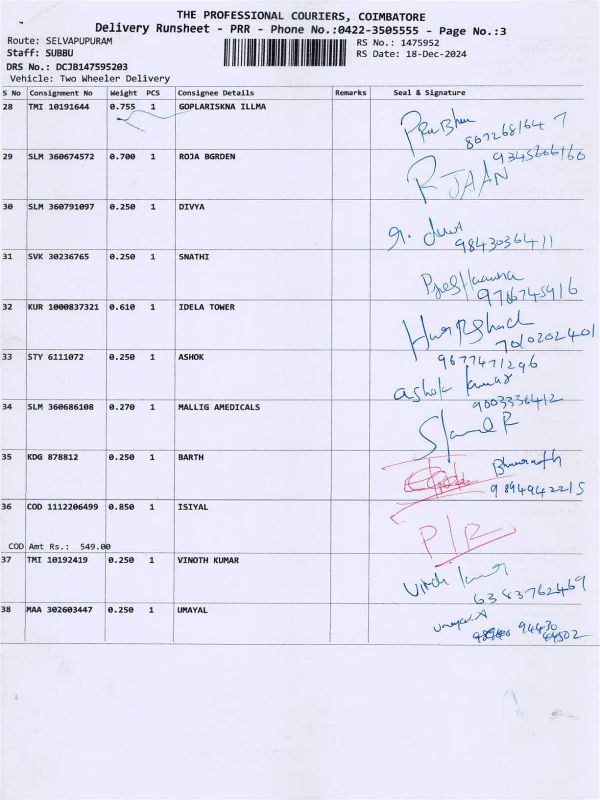 THE PROFESSIONAL COURIERS, COIMBATORE
Delivery Runsheet - PRR - Phone No.:0422-3505555 - Page No.:3
Route: SELVAPUPURAM RS No.: 1475952
Staff: SUBBU RS Date: 18-Dec-2024
DRS No.: DCJB147595203
Vehicle: Two Wheeler Delivery
S No Consignment No Weight PCS Consignee Details Remarks Seal & Signature
28 TMI 10191644 0.755 1 GOPLARISKNA ILLMA
8072681647
29 SLM 360674572 0.700 1 ROJA BGRDEN 9345606160
R JAAN
30 SLM 360791097 0.250 1 DIVYA
9843036411
31 SVK 30236765 0.250 1 SNATHI
9786745916
32 KUR 1000837321 0.610 1 IDELA TOWER
7010202401
33 STY 6111072 0.250 1 ASHOK 9677471296
ashok kumar
34 SLM 360686108 0.270 1 MALLIG AMEDICALS 9003336412
35 KDG 878812 0.250 1 BARTH
9894942215
36 COD 1112206499 0.850 1 ISIYAL
P/R
COD Amt Rs.: 549.00
37 TMI 10192419 0.250 1 VINOTH KUMAR
6383762469
38 MAA 302603447 0.250 1 UMAYAL
Umayal A
94430
44502